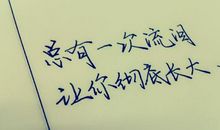 总有一次流泪
让你彻底长大